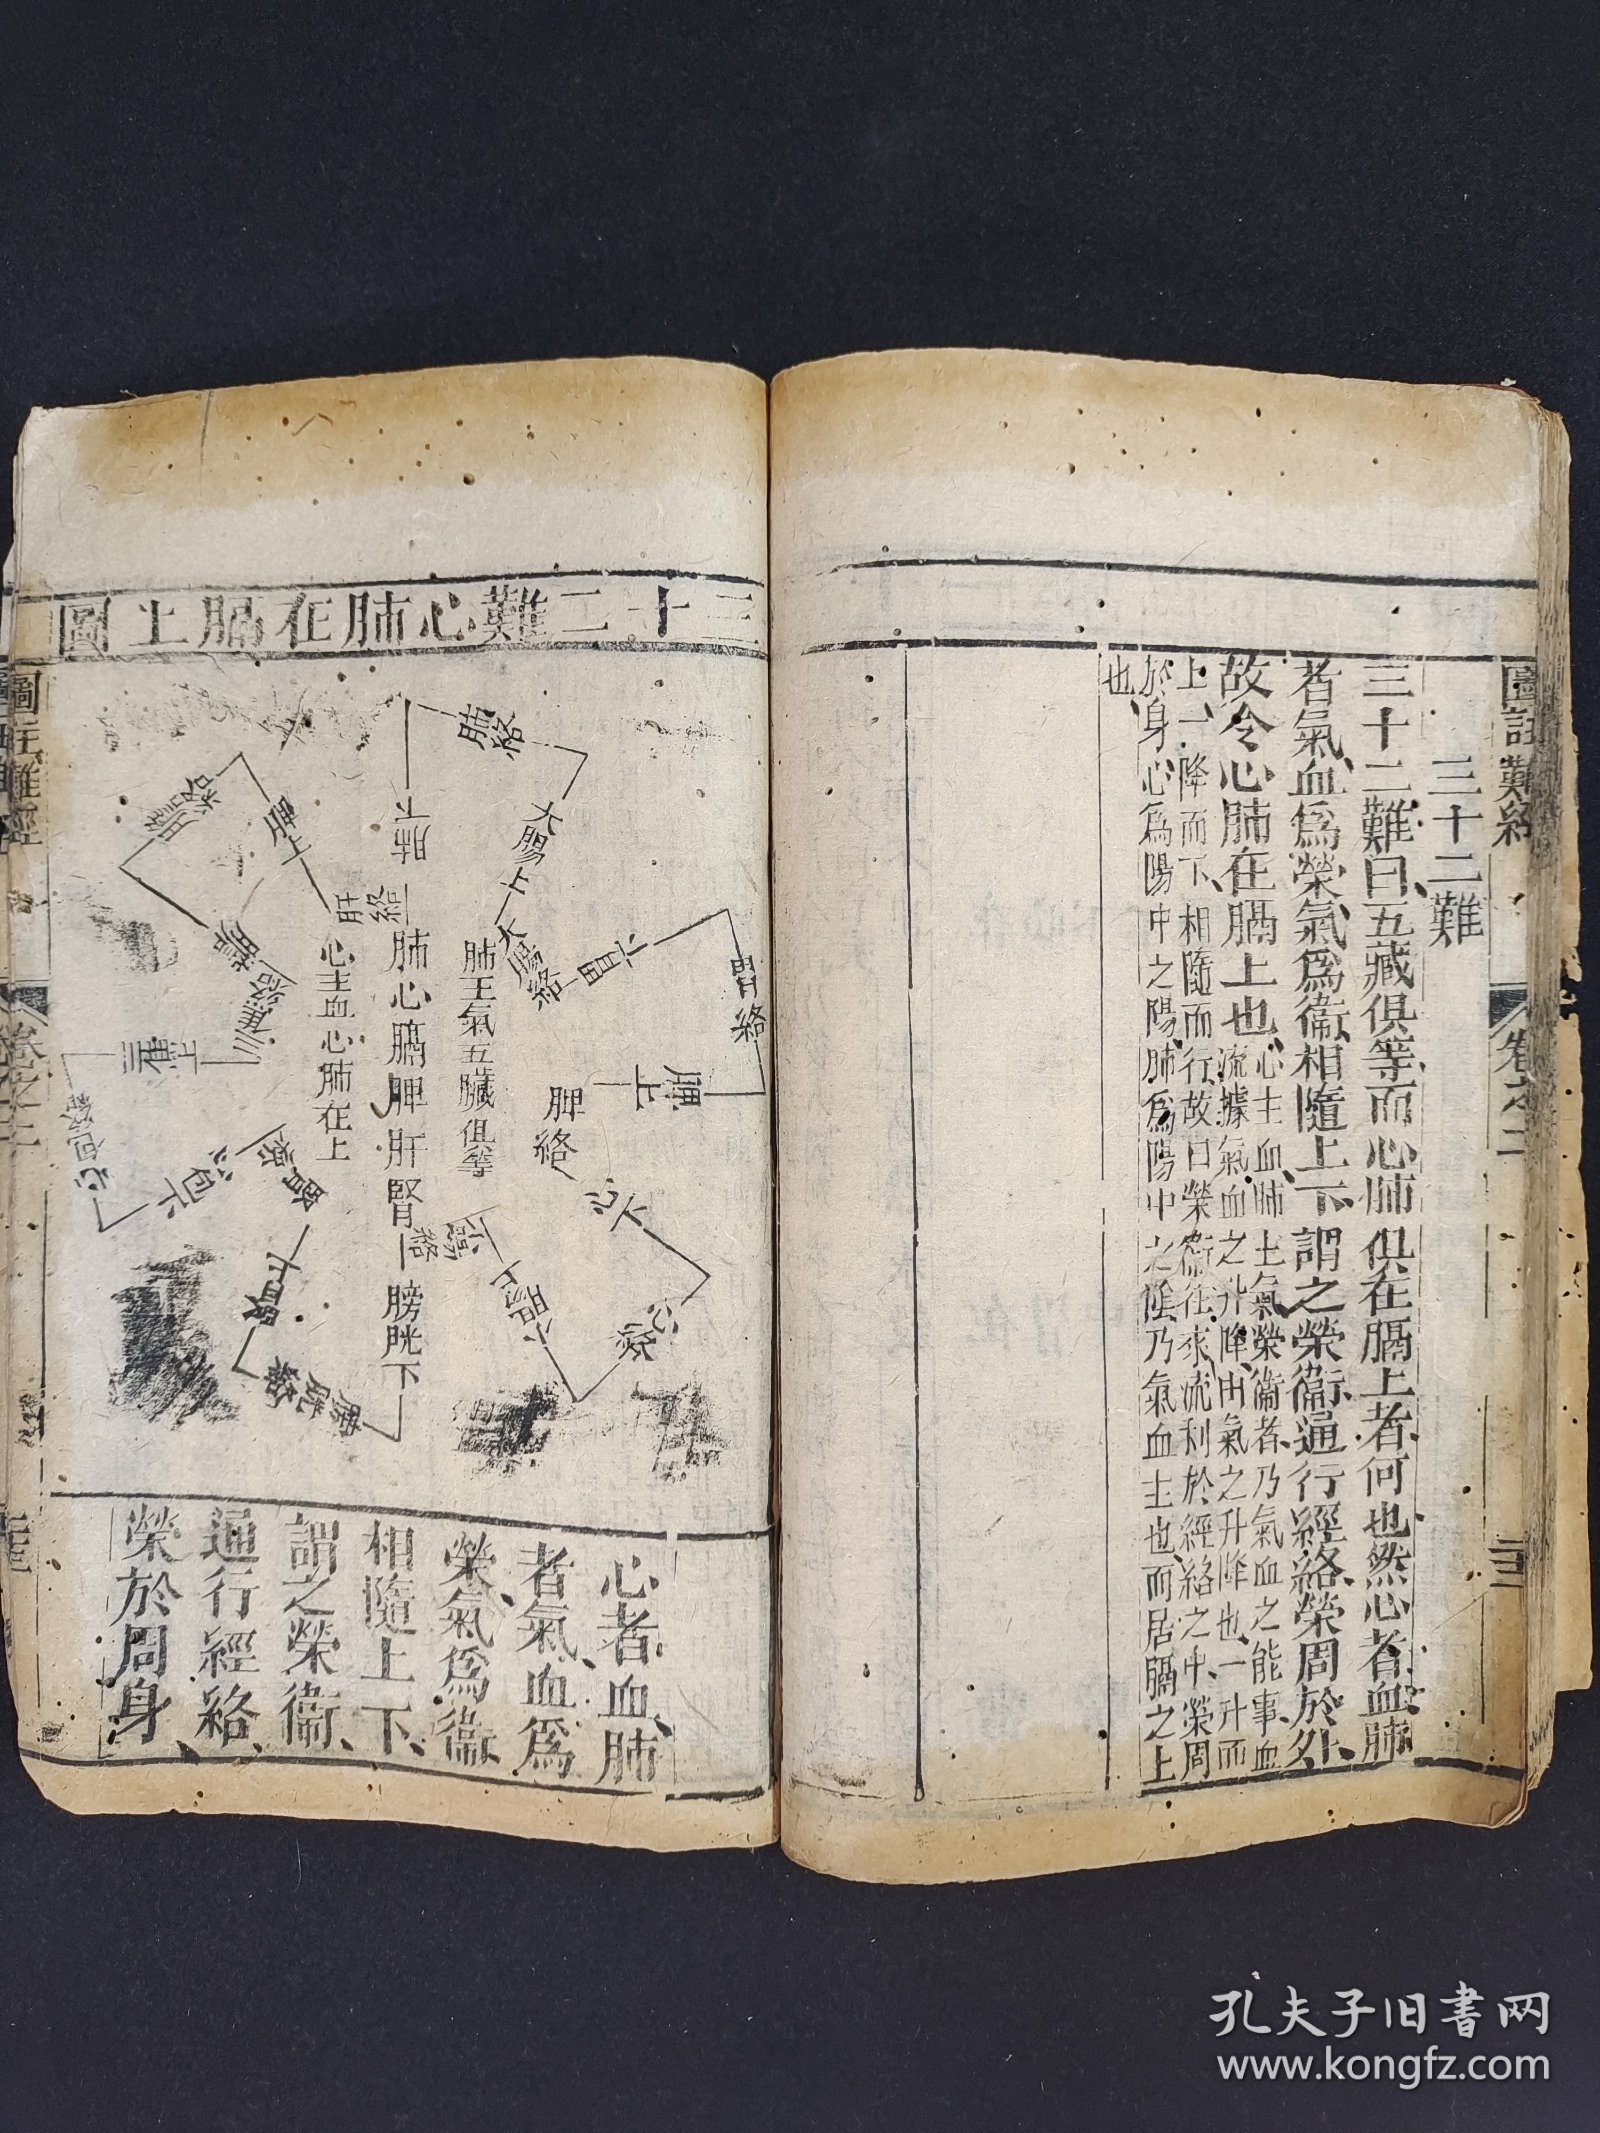 圖註難經
卷之二
三十二難
三十二難曰五藏俱等而心肺俱在膈上者何也然心者血肺
者氣血爲榮氣爲衞相隨上下謂之榮衞通行經絡榮周於外
故令心肺在膈上也心主血肺主氣榮衞者乃氣血之能事血
流據氣血之升降由氣之升降也一升而
上一降而下相隨而行故曰榮衞往來流利於經絡之中榮周
於身心爲陽中之陽肺爲陽中之陰乃氣血主也而居膈之上
也
三十二難心肺在膈上圖
肺絡
大腸上
大腸絡
胃絡
脾上
脾絡
心下
心絡
小腸上
小腸絡
肺主氣五臟俱等
肺心膈脾肝腎
膀胱下
心主血心肺在上
肝絡
三焦上
三焦絡
包下
膀胱絡
心者血肺
者氣血爲
榮氣爲衞
相隨上下
謂之榮衞
通行經絡
榮於周身
圖註難經
孔夫子旧书网
www.kongfz.com